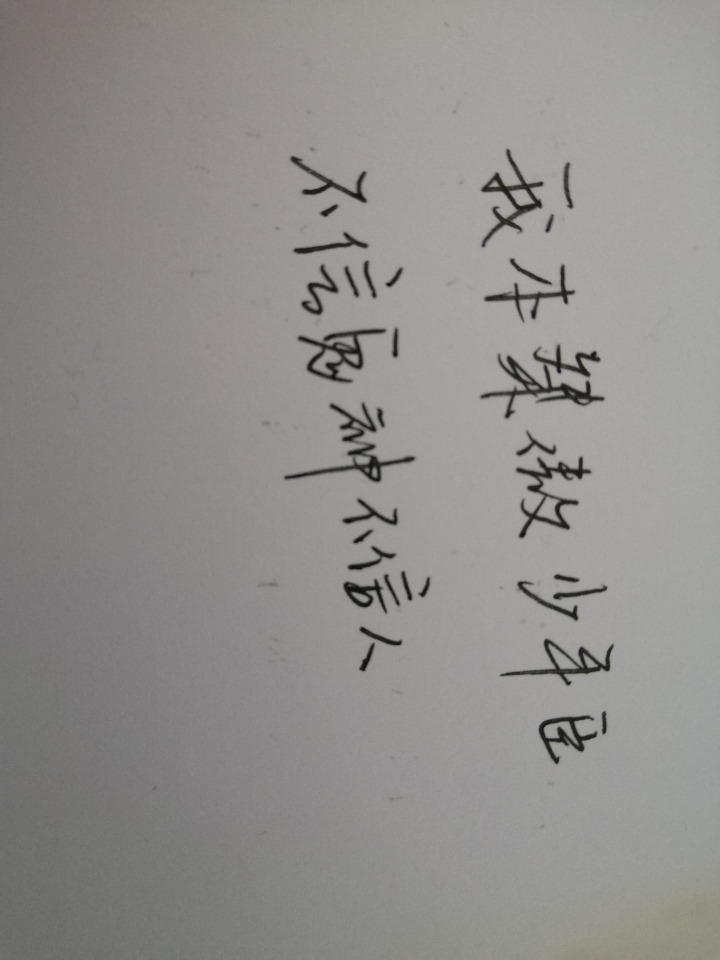 我本桀骜少年臣
不信鬼神不信人